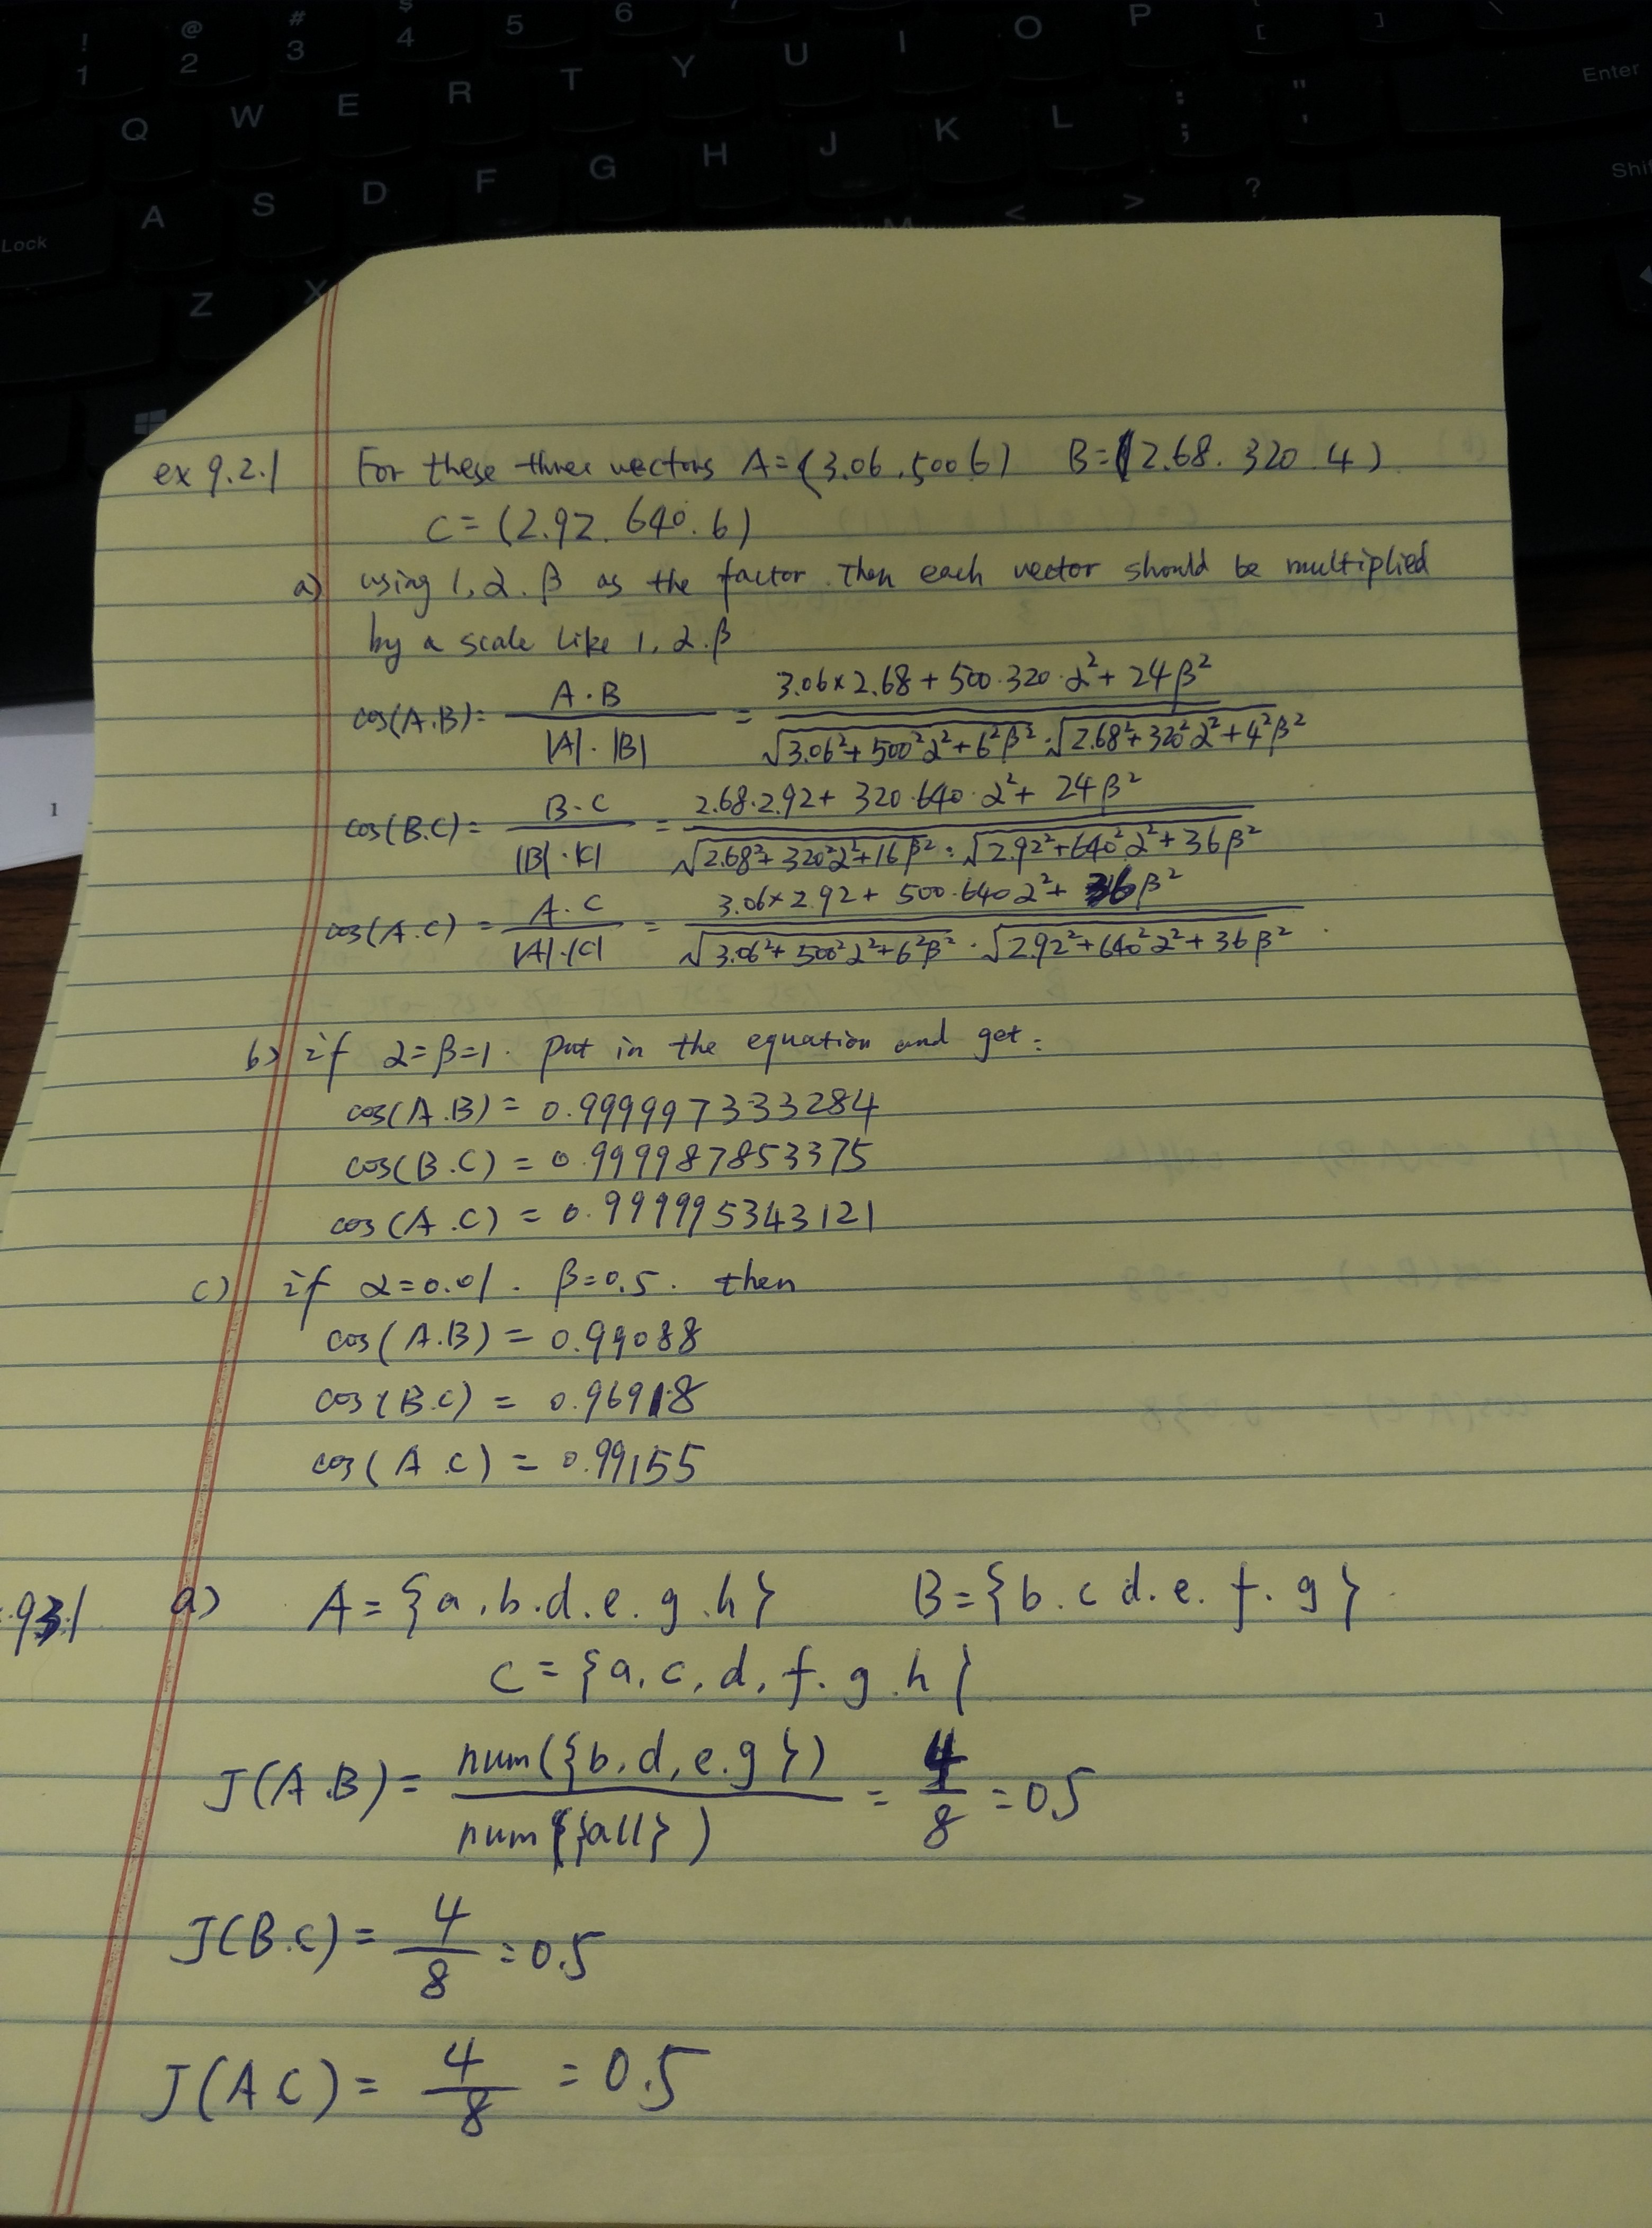 ! @ # $
1 2 3 4 5 6 7
Q W E R T Y U I O P [ ] \
Enter
A S D F G H J K L : ; " '
Lock
Z X M < > ?
Shif
1
ex 9.2.1 For these three vectors A=(3.06.500 6) B=(2.68. 320.4)
C=(2.92. 640.6)
a) using 1, α. β as the factor. Then each vector should be multiplied
by a scale like 1, α.β
cos(A.B)= A·B / |A|·|B| = 3.06×2.68+500·320·α²+24β² / √3.06²+500²α²+6²β² · √2.68²+320²α²+4²β²
cos(B.C)= B·C / |B|·|C| = 2.68·2.92+ 320·640·α²+ 24β² / √2.68²+320²α²+16β² · √2.92²+640²α²+36β²
cos(A.C) = A.C / |A|·|C| = 3.06×2.92+ 500·640α²+ 36β² / √3.06²+500²α²+6²β² · √2.92²+640²α²+36β²
b) if α=β=1. put in the equation and get:
cos(A.B)= 0.999997333284
cos(B.C) = 0.999987853375
cos(A.C) = 0.999995343121
c) if α=0.01. β=0.5. then
cos(A.B) = 0.99088
cos(B.C) = 0.96918
cos(A.C) = 0.99155
.93.1 a) A={a,b.d.e.g.h} B={b.c d.e.f.g}
C={a,c,d,f.g.h}
J(A.B)= num({b,d,e.g}) / num({all}) = 4/8 =0.5
J(B.C)= 4/8 =0.5
J(A C)= 4/8 =0.5